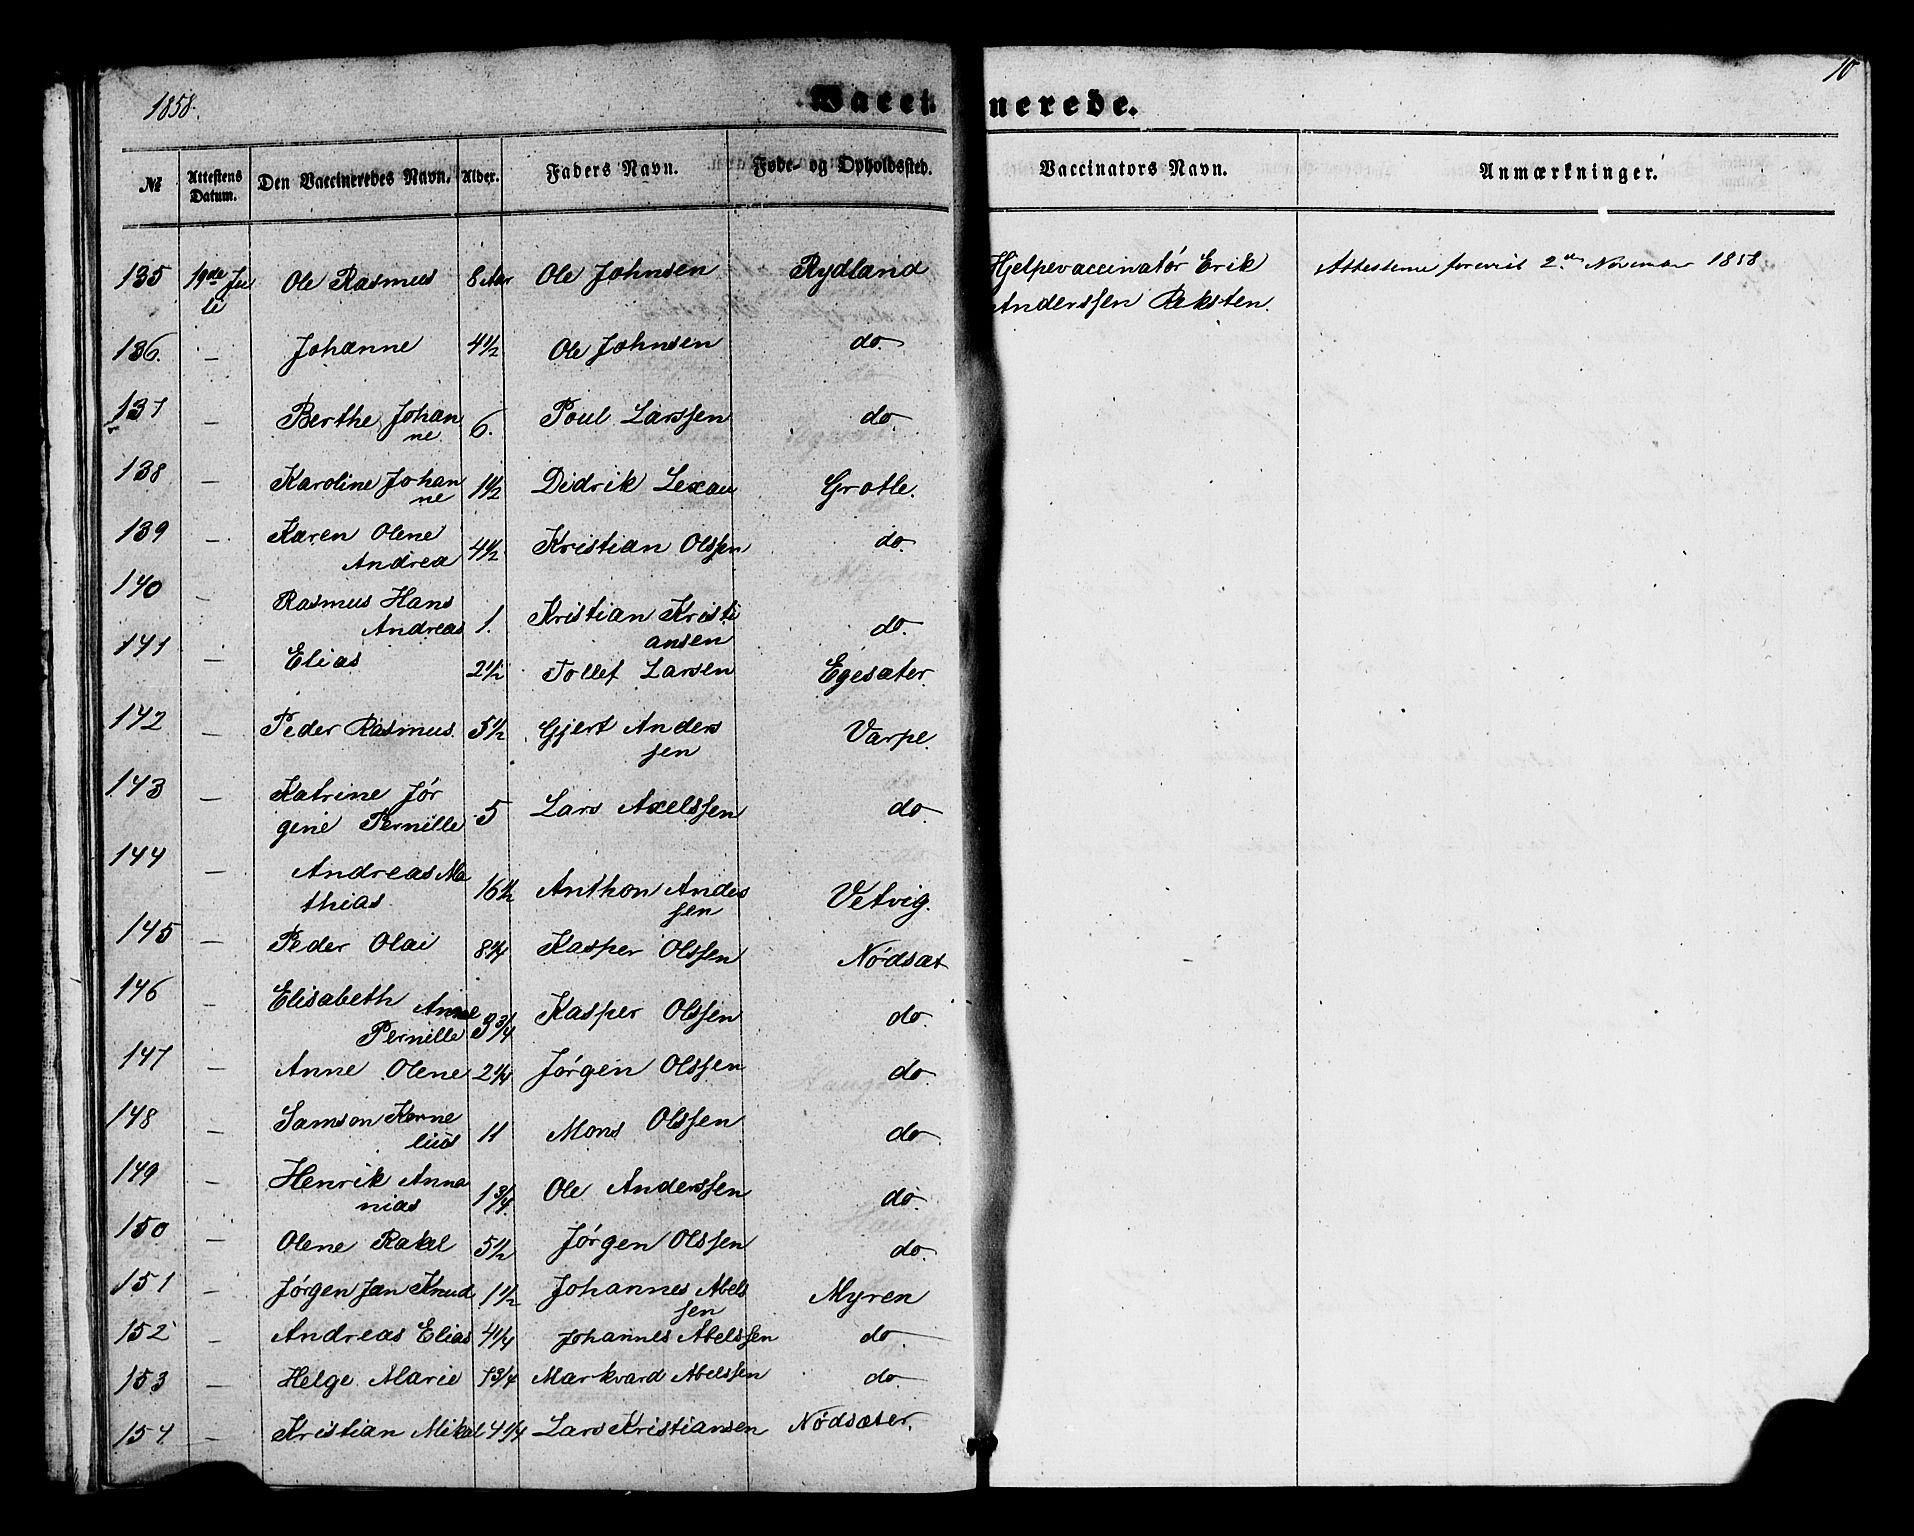 1858.
Vacci nerede.
10
№ Attestens Datum. Den Vaccineredes Navn. Alder. Faders Navn. Føde- og Opholdssted. Vaccinators Navn. Anmærkninger.
135 19de Juli Ole Rasmus 8 Aar Ole Johnsen Rydland Hjelpevaccinatør Erik Anderssen Reksten. Attesterne foreviist 2den November 1858
136. — Johanne 4 1/2 Ole Johnsen do.
137 — Berthe Johanne 6. Poul Larssen do.
138 — Karoline Johanne 1 1/2 Didrik Lexau Grotle.
139 — Karen Olene Andrea 4 1/2 Kristian Olssen do.
140 — Rasmus Hans Andreas 1. Kristian Kristiansen do.
141 — Elias 2 1/2 Tollef Larsen Egesæter.
142 — Peder Rasmus. 5 1/2 Gjert Anderssen Varpe.
143 — Katrine Jørgine Pernille 5 Lars Axelssen do.
144 — Andreas Mathias 16 1/2 Anthon Andessen Vetvig.
145 — Peder Olai 8 3/4 Kasper Olssen Nødsæt
146 — Elisabeth Anne Pernille 3 3/4 Kasper Olssen do.
147 — Anne Olene 2 1/4 Jørgen Olssen do.
148 — Samson Kornelius 11 Mons Olssen do.
149 — Henrik Annanias 1 3/4 Ole Anderssen do.
150 — Olene Rakel 5 1/2 Jørgen Olssen do.
151 — Jørgen Jan Knud 1 1/2 Johannes Abelssen Myren
152 — Andreas Elias 4 1/4 Johannes Abelssen do.
153 — Helge Marie 1 3/4 Markvard Abelssen do.
154 — Kristian Mikal 4 1/4 Lars Kristiansen Nødsæter.